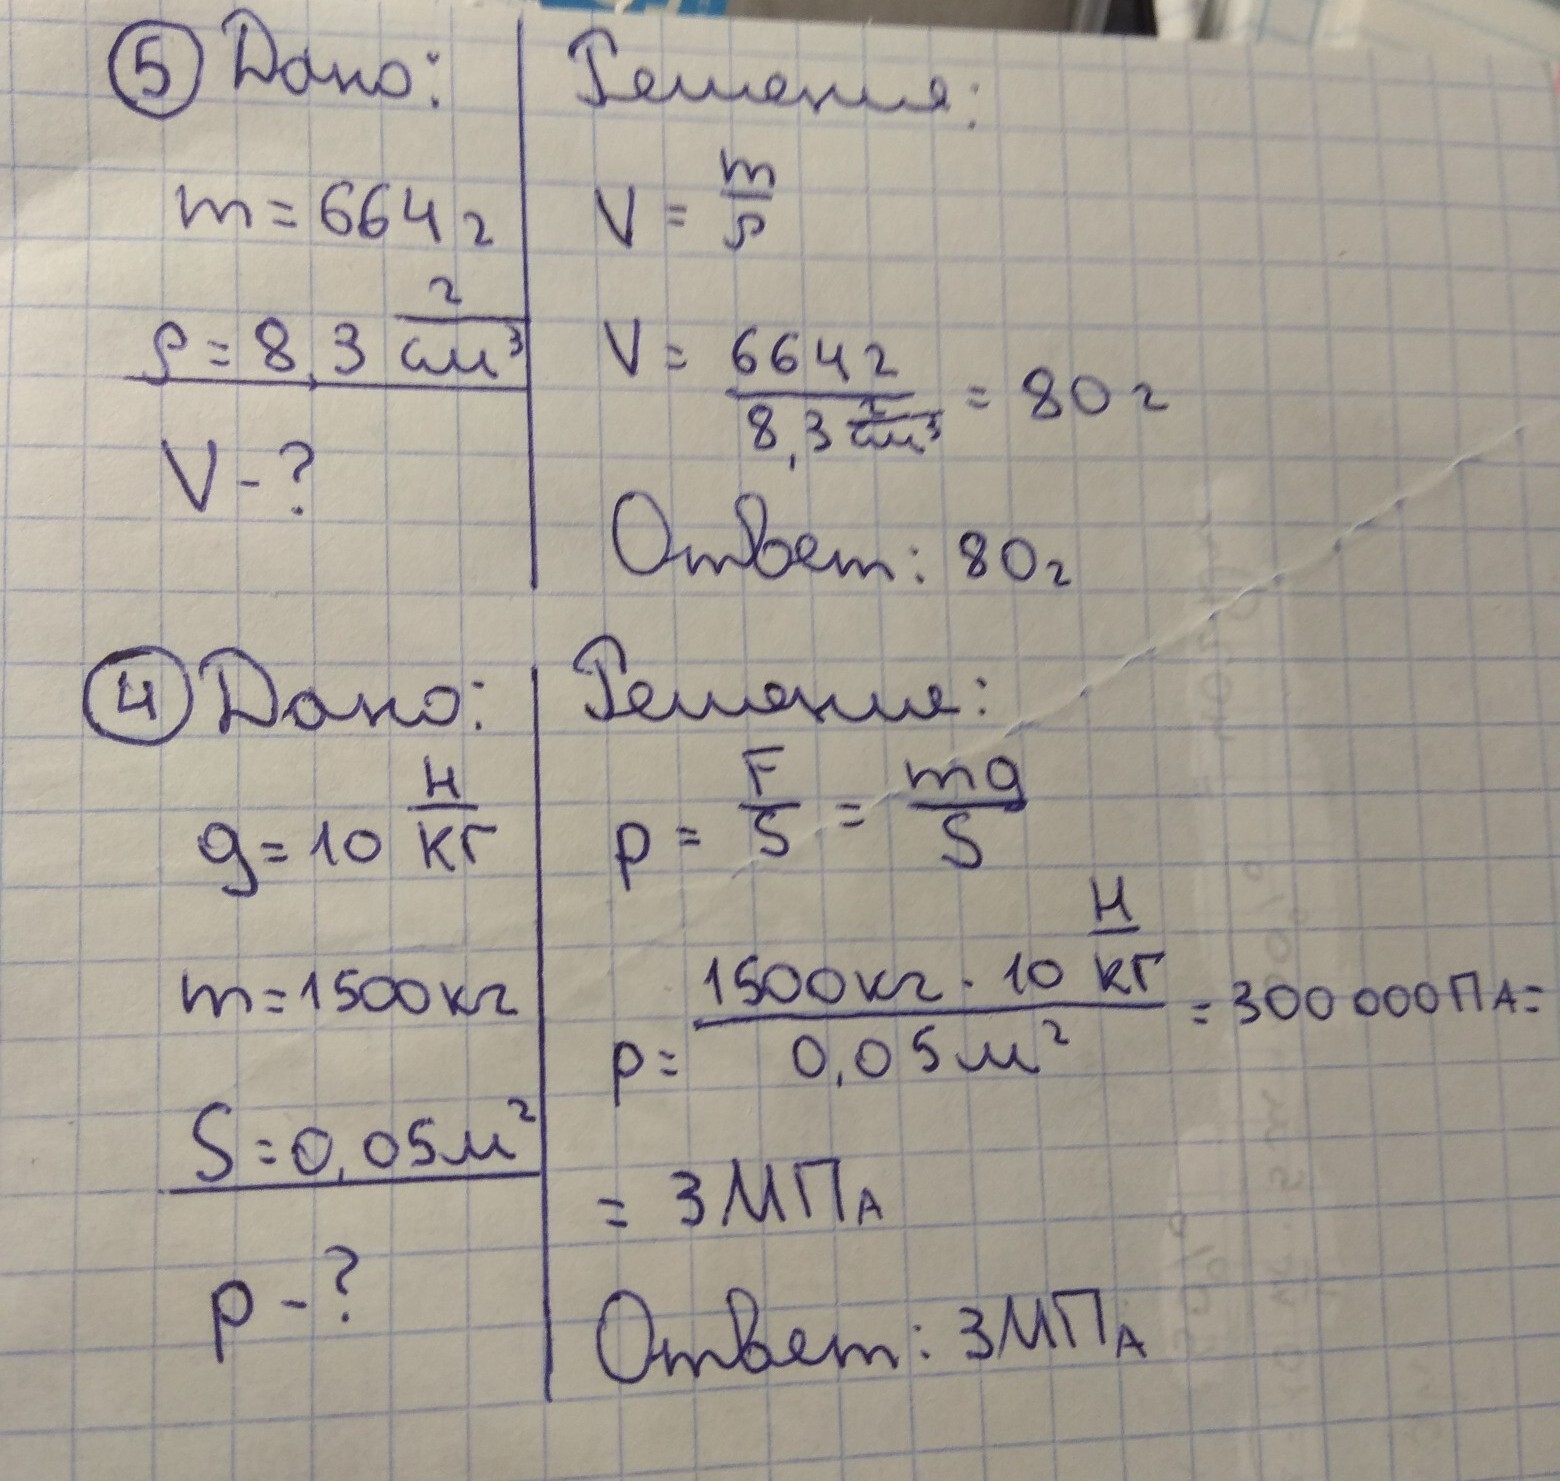 5 Дано:
m = 664 г
ρ = 8,3 г/см³
V - ?
Решение:
V = m/ρ
V = 664 г / 8,3 г/см³ = 80 г
Ответ: 80 г
4 Дано:
g = 10 Н/кг
m = 1500 кг
S = 0,05 м²
p - ?
Решение:
p = F/S = mg/S
p = 1500 кг · 10 Н/кг / 0,05 м² = 300 000 ПА =
= 3 МПА
Ответ: 3 МПА